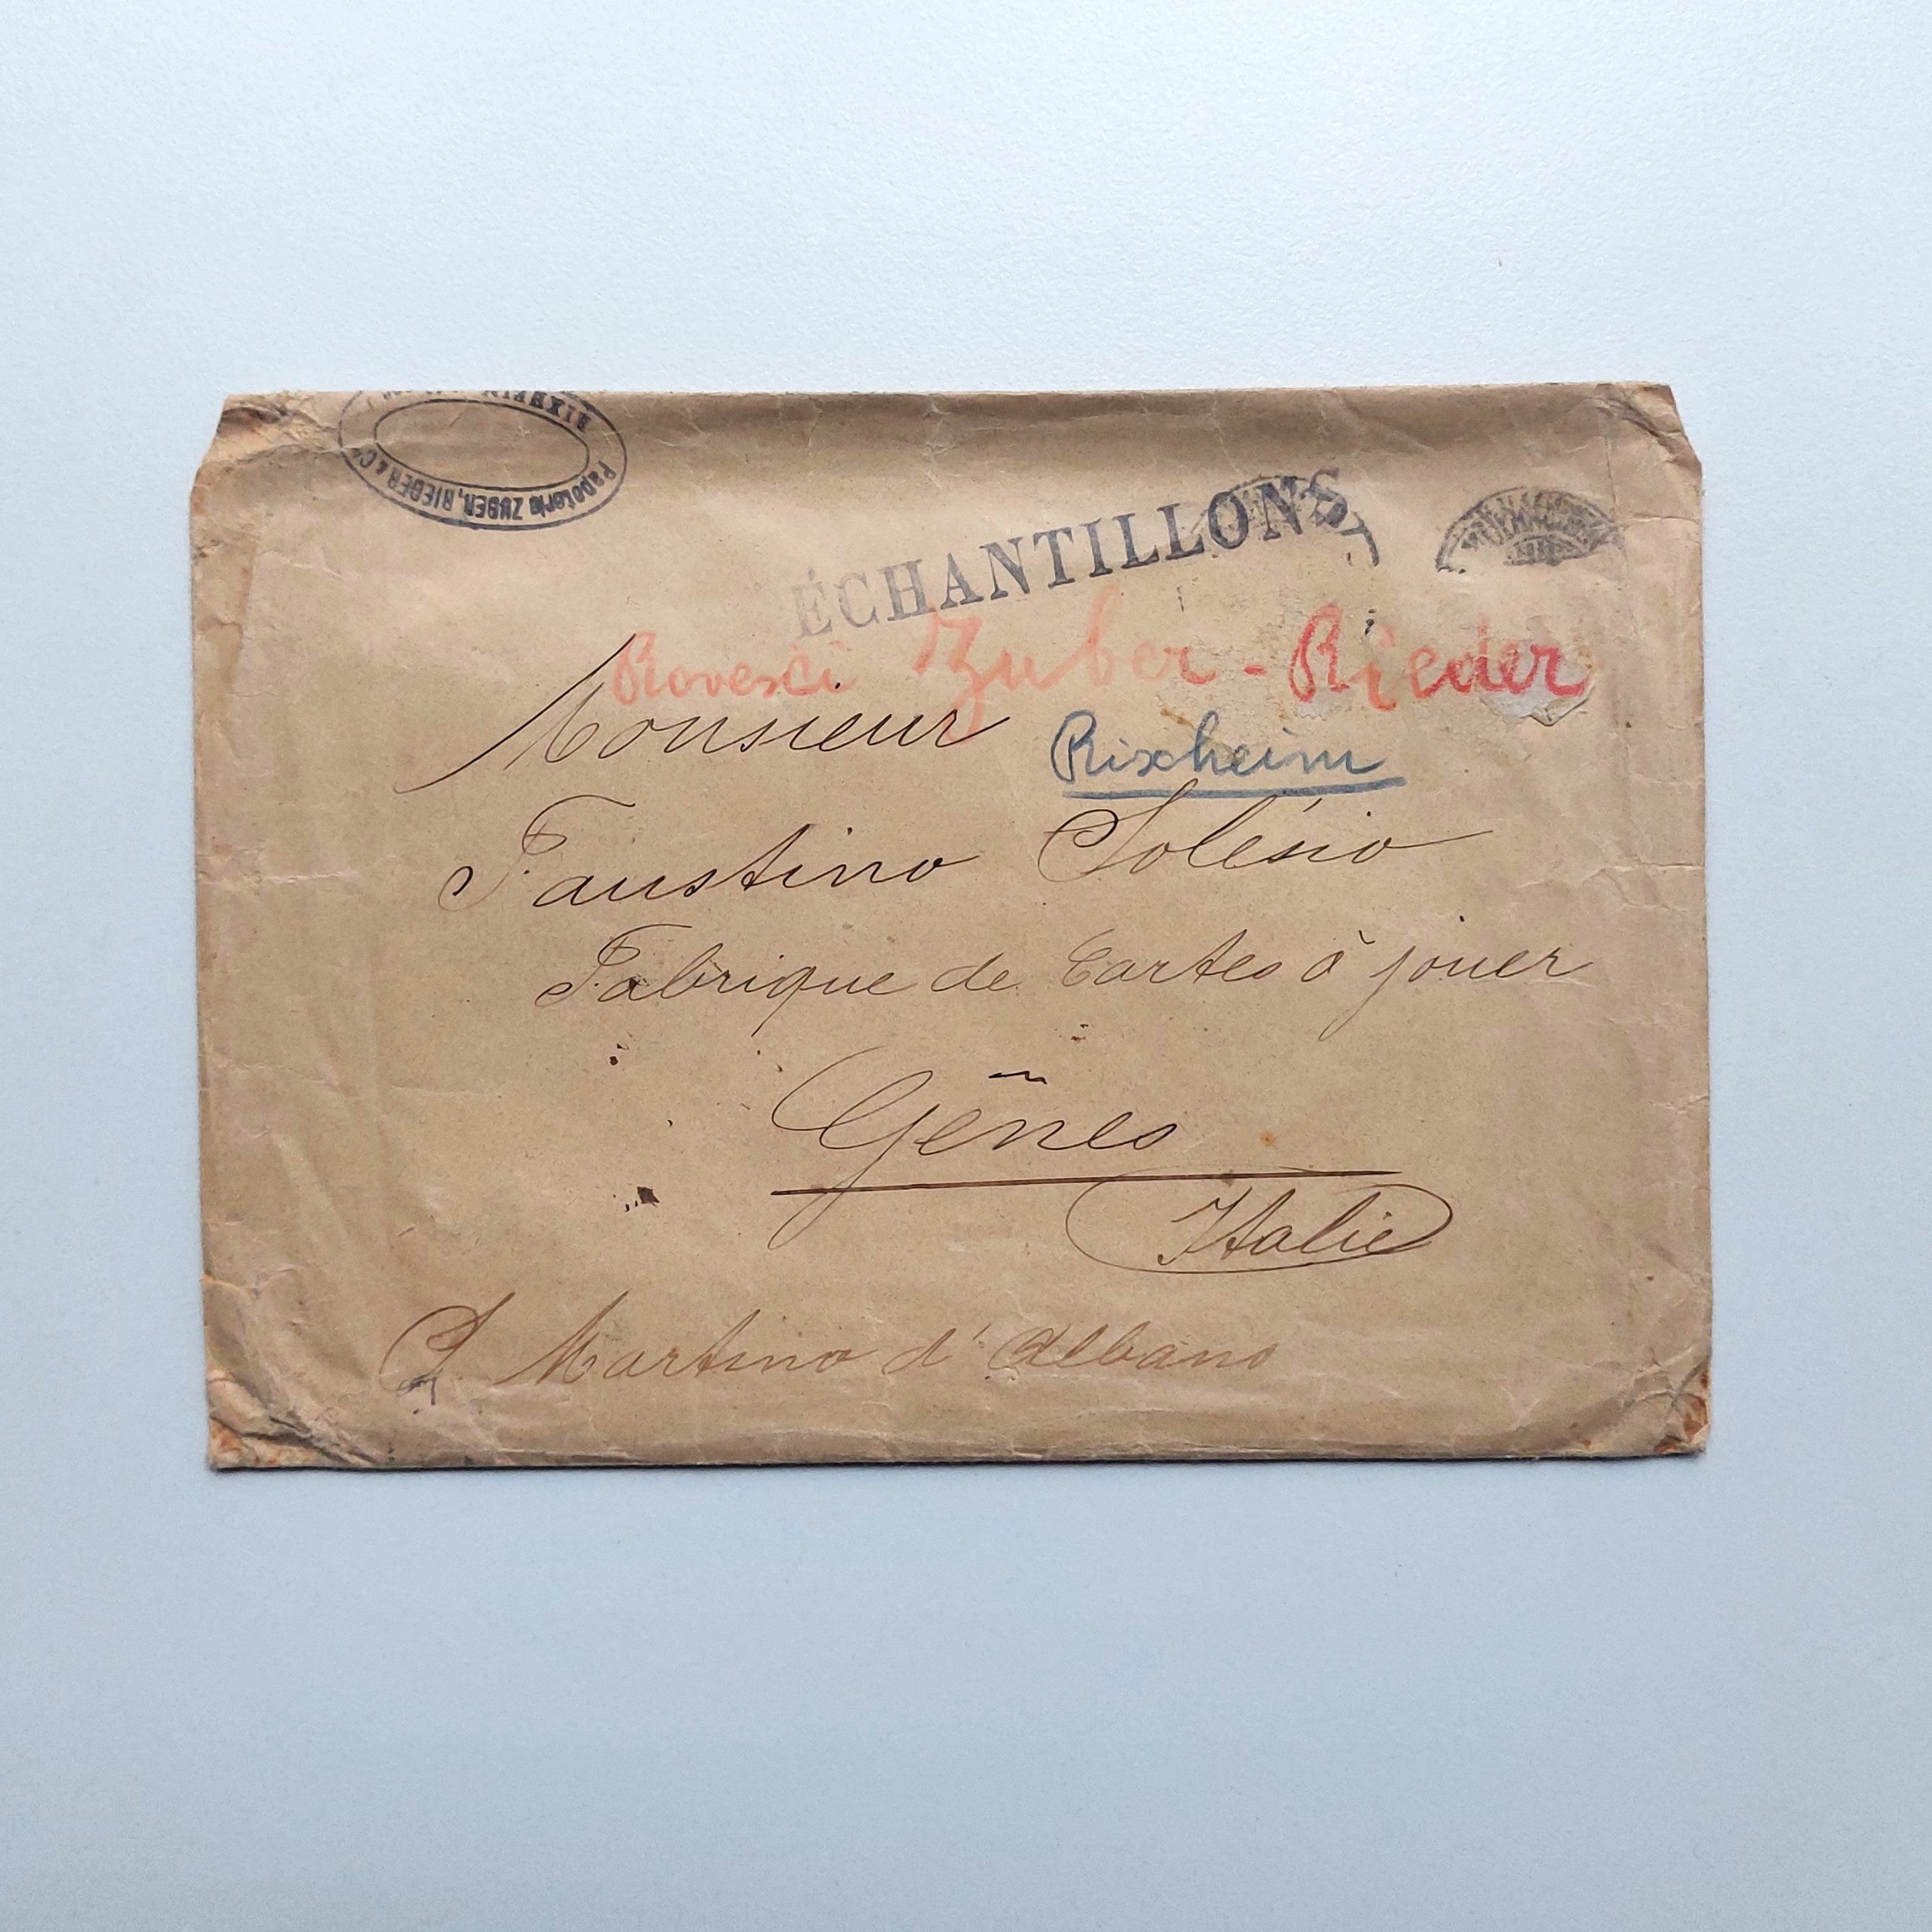 RIXHEIM
Papeterie ZUBER, RIEDER & Cie
ÉCHANTILLONS
Rovesci Zuber - Rieder
Monsieur
Rixheim
Faustino Solésio
Fabrique de Cartes à jouer
Gênes
Italie
S. Martino d'Albano